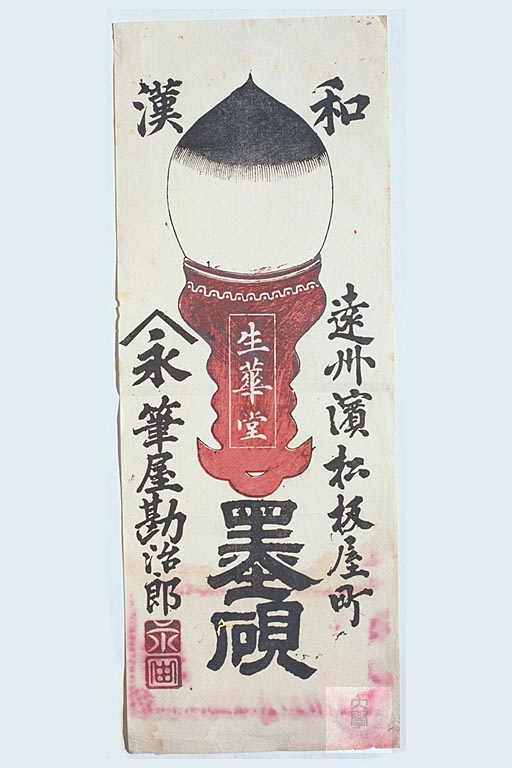 和漢
遠州濱松板屋町
生華堂
墨硯
永
筆屋勘治郎